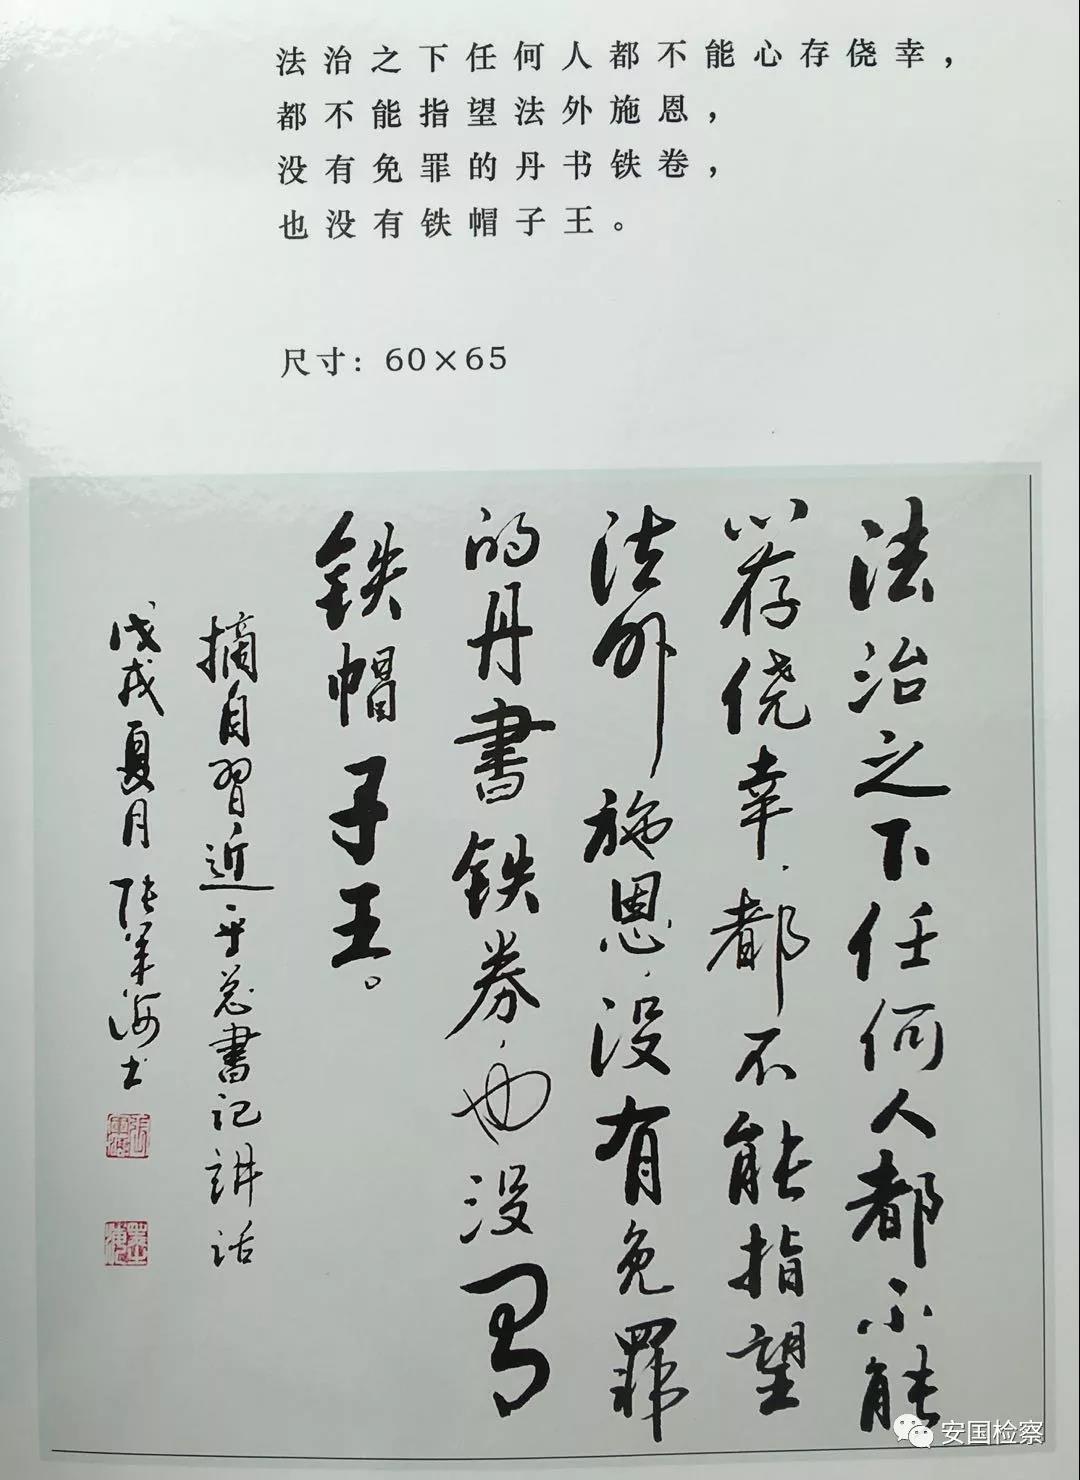 法治之下任何人都不能心存侥幸，
都不能指望法外施恩，
没有免罪的丹书铁卷，
也没有铁帽子王。
尺寸：60×65
法治之下任何人都不能
心存侥幸．都不能指望
法外施恩．没有免罪
的丹書铁券．也没有
铁帽子王。
摘自習近平总書记讲话
戊戌夏月张军海书
安国检察